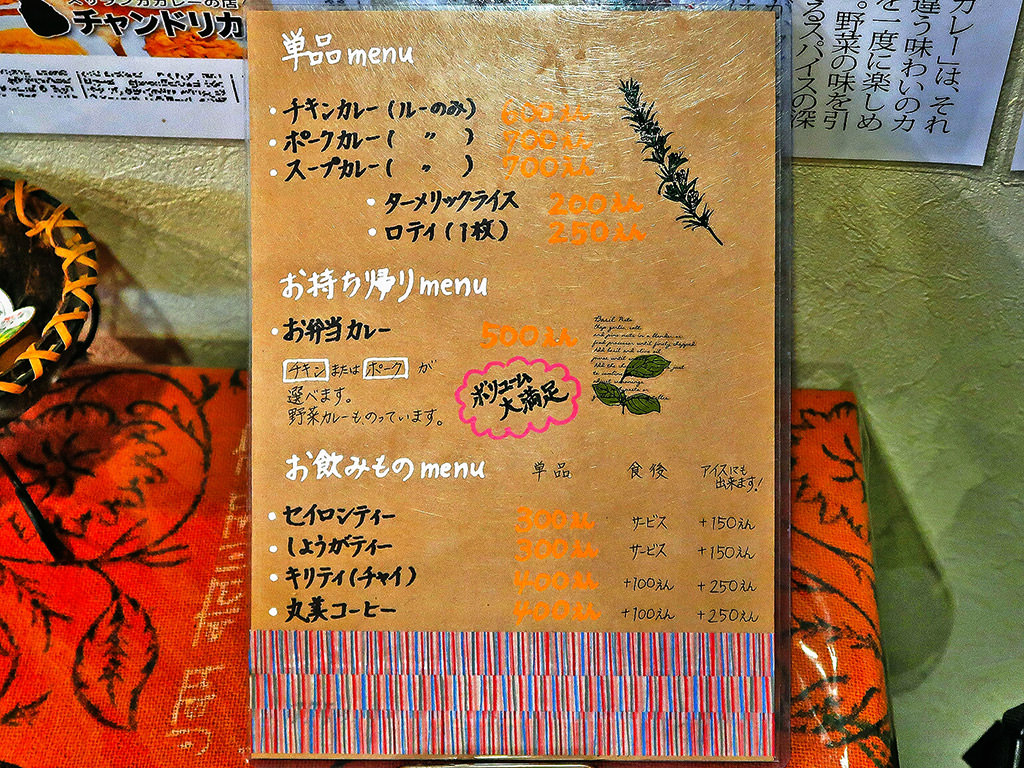 チャンドリカ
カレー」は、それ
違う味わいのカ
を一度に楽しめ
。野菜の味を引
るスパイスの深
単品menu
・チキンカレー(ルーのみ) 600えん
・ポークカレー( 〃 ) 700えん
・スープカレー( 〃 ) 700えん
・ターメリックライス 200えん
・ロティ(1枚) 250えん
お持ち帰りmenu
・お弁当カレー 500えん
チキン または ポーク が
選べます。
野菜カレーものっています。
ボリューム
大満足
お飲みものmenu 単品 食後 アイスにも
出来ます!
・セイロンティー 300えん サービス +150えん
・しょうがティー 300えん サービス +150えん
・キリティ(チャイ) 400えん +100えん +250えん
・丸美コーヒー 400えん +100えん +250えん